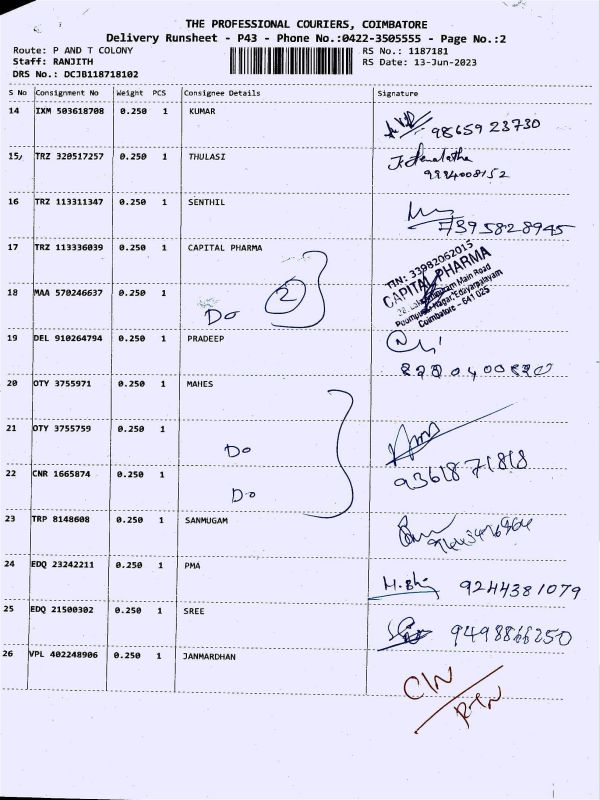 THE PROFESSIONAL COURIERS, COIMBATORE
Delivery Runsheet - P43 - Phone No.:0422-3505555 - Page No.:2
Route: P AND T COLONY
RS No.: 1187181
Staff: RANJITH
RS Date: 13-Jun-2023
DRS No.: DCJB118718102
S No Consignment No Weight PCS Consignee Details Signature
14 IXM 503618708 0.250 1 KUMAR
98659 23730
15 TRZ 320517257 0.250 1 THULASI
9884008152
16 TRZ 113311347 0.250 1 SENTHIL
7395828945
17 TRZ 113336039 0.250 1 CAPITAL PHARMA
TIN: 33982062015
CAPITAL PHARMA
Main Road
Nagar, Edayarpalayam
Coimbatore - 641 025
18 MAA 570246637 0.250 1
Do 2
19 DEL 910264794 0.250 1 PRADEEP
20 OTY 3755971 0.250 1 MAHES
21 OTY 3755759 0.250 1
Do
22 CNR 1665874 0.250 1
Do
9361871818
23 TRP 8148608 0.250 1 SANMUGAM
24 EDQ 23242211 0.250 1 PMA
9244381079
25 EDQ 21500302 0.250 1 SREE
9498866250
26 VPL 402248906 0.250 1 JANMARDHAN
CIN/RTN